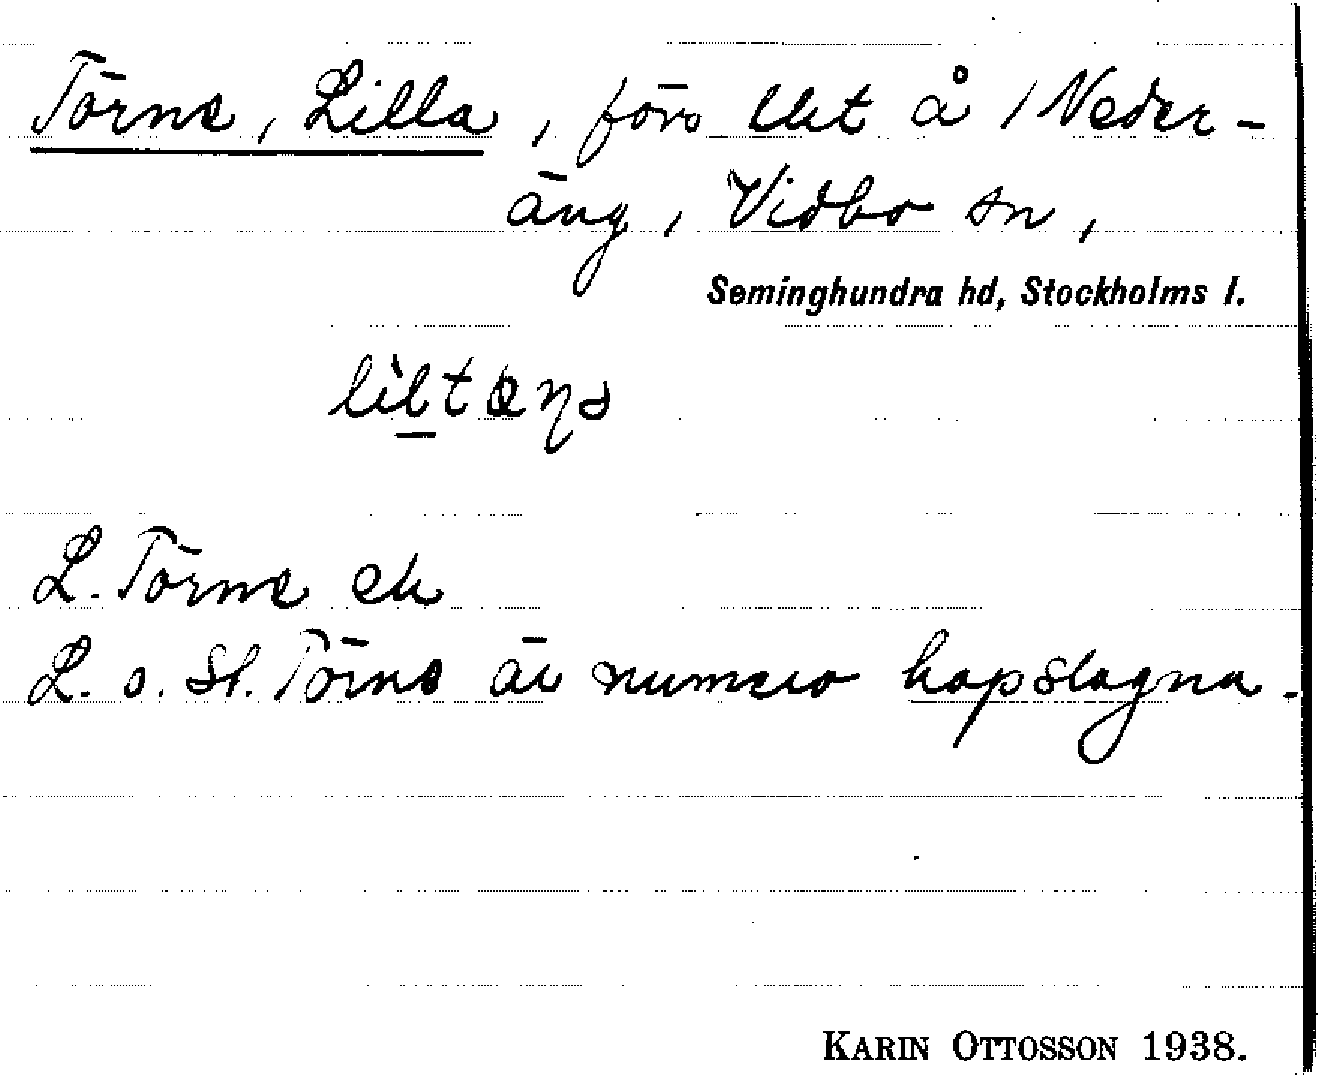 Törne, Lilla, förs lht å / Neder-
äng, Vidbo sn,
Seminghundra hd, Stockholms l.
L. Törne ek
L. o. St. Törne är numera hopslagna.
KARIN OTTOSSON 1938.